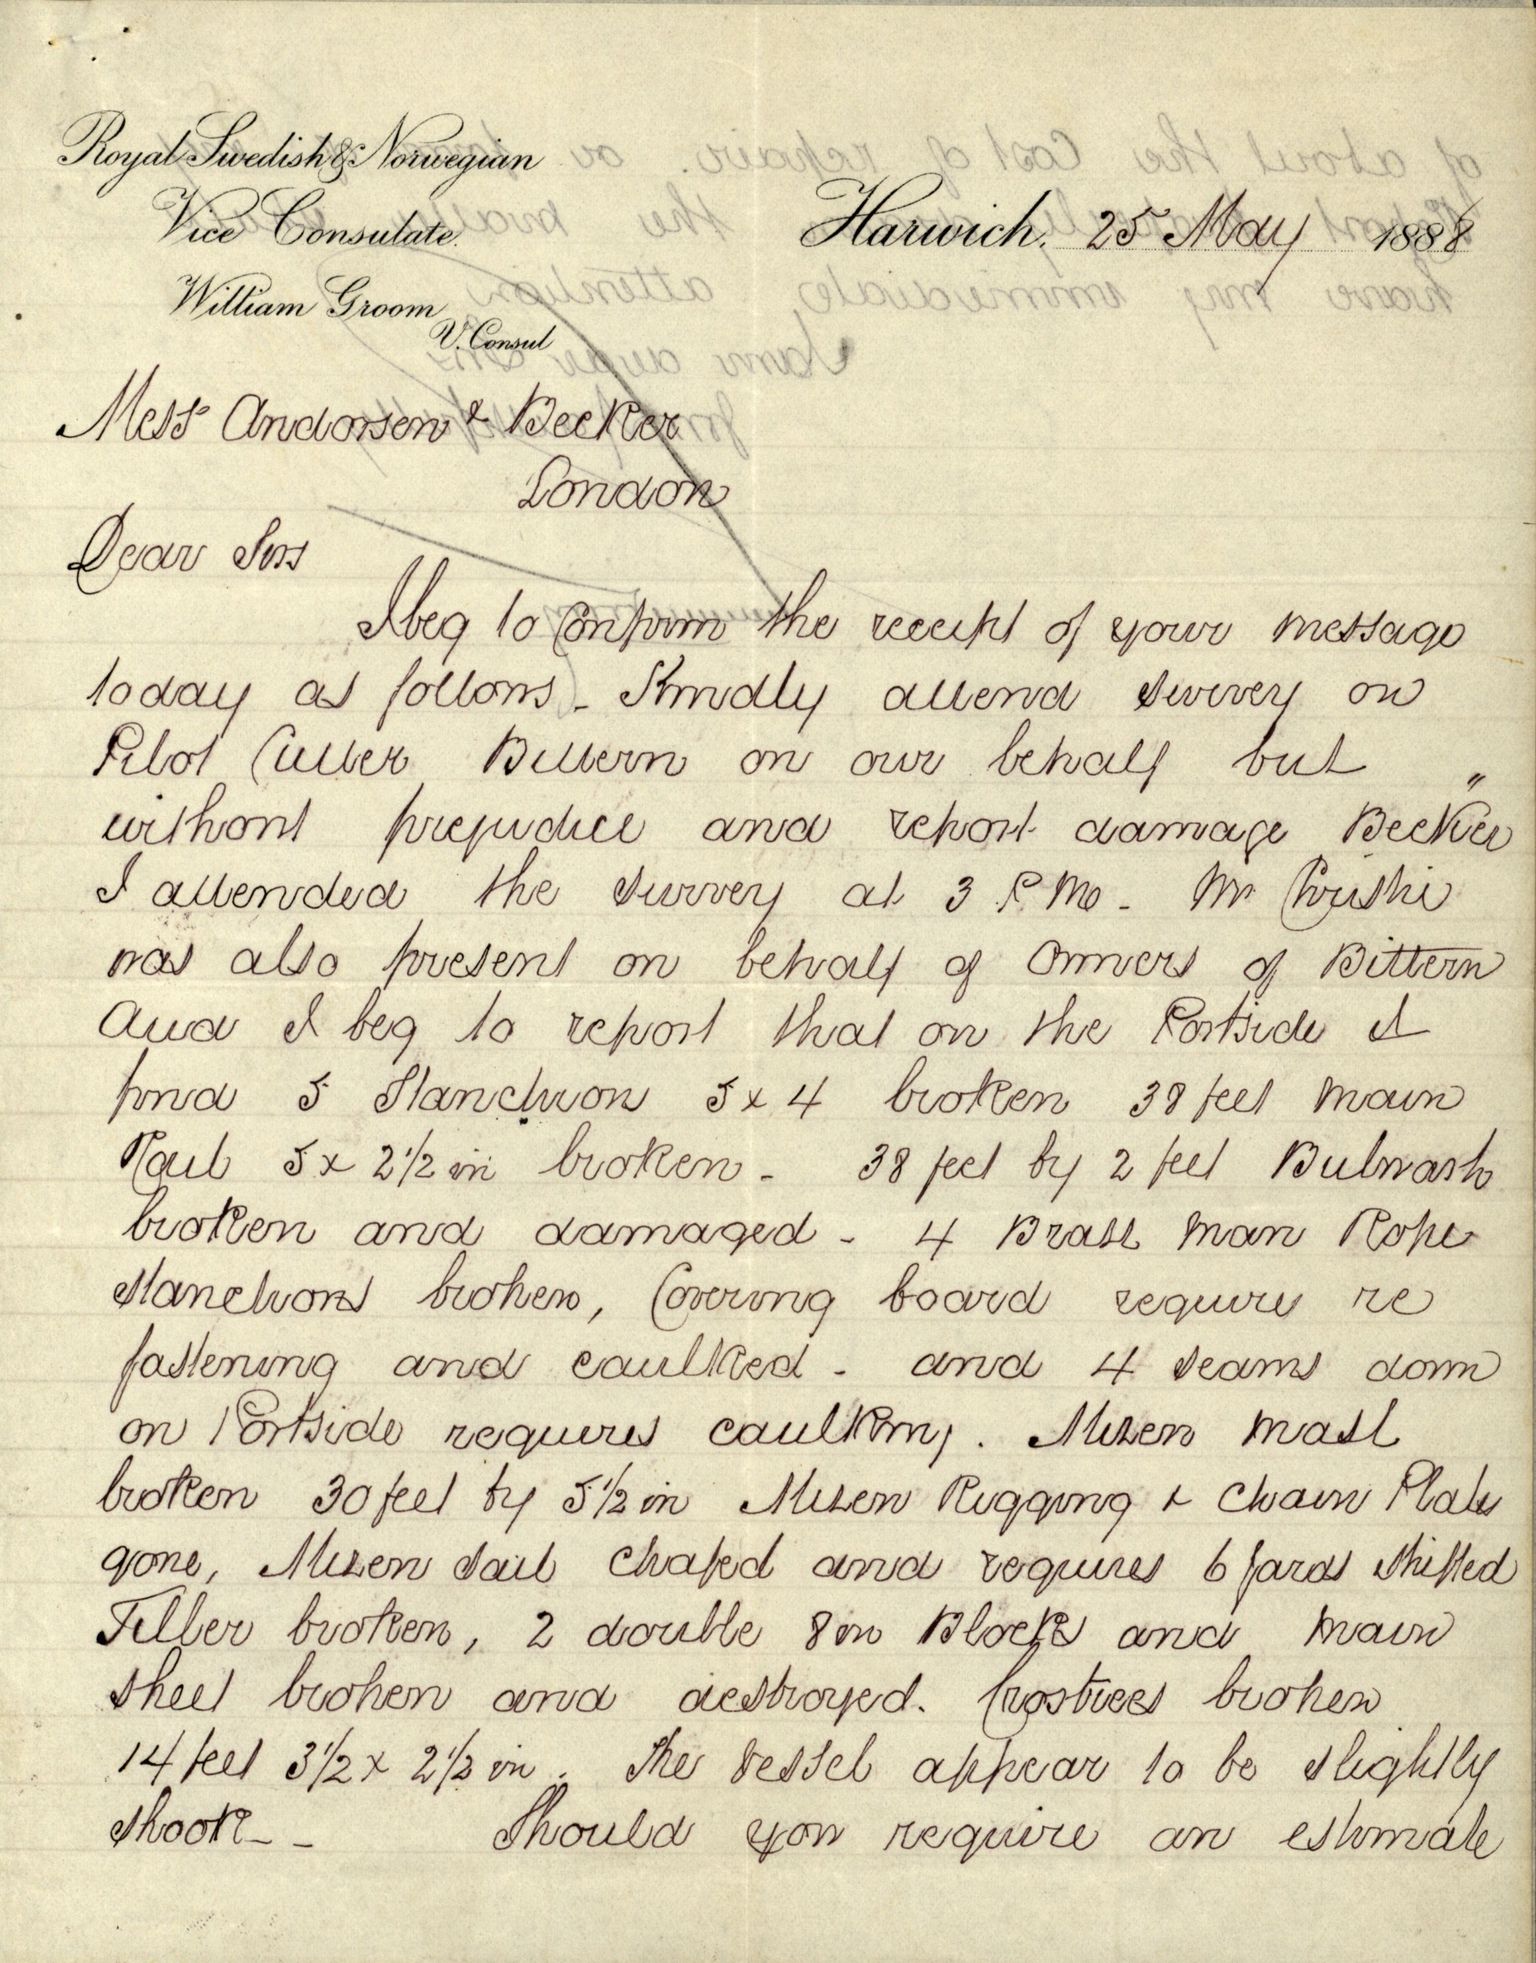 Royal Swedish & Norwegian
Vice Consulate.
William Groom
V. Consul
Harwich, 25 May 1888
Messrs Andorsen & Becker
London
Dear Sirs
I beg to Confirm the receipt of your message
today as follows - Kindly attend survey on
Pilot Cutter Bittern on our behalf but
without prejudice and report damage Becker"
I attended the survey at 3 P.M. - Mr Christie
was also present on behalf of Owners of Bittern
And I beg to report that on the Portside I
find 5 Stanchion 5 x 4 broken 38 feet Main
Rail 5 x 2 1/2 in broken - 38 feet by 2 feet Bulwash
broken and damaged - 4 Brass Man Rope
Stanchions broken, Covering board require re
fastening and caulked - and 4 seams down
on Portside requires caulking. Mizen Mast
broken 30 feet by 5 1/2 in Mizen Rigging & Chain Plates
gone, Mizen Sail Chafed and requires 6 yards shifted
Tiller broken, 2 double 8 in Blocks and Main
sheet broken and destroyed. Crostrees broken
14 feet 3 1/2 x 2 1/2 in. The Vessel appear to be slightly
shook - - Should you require an estimate